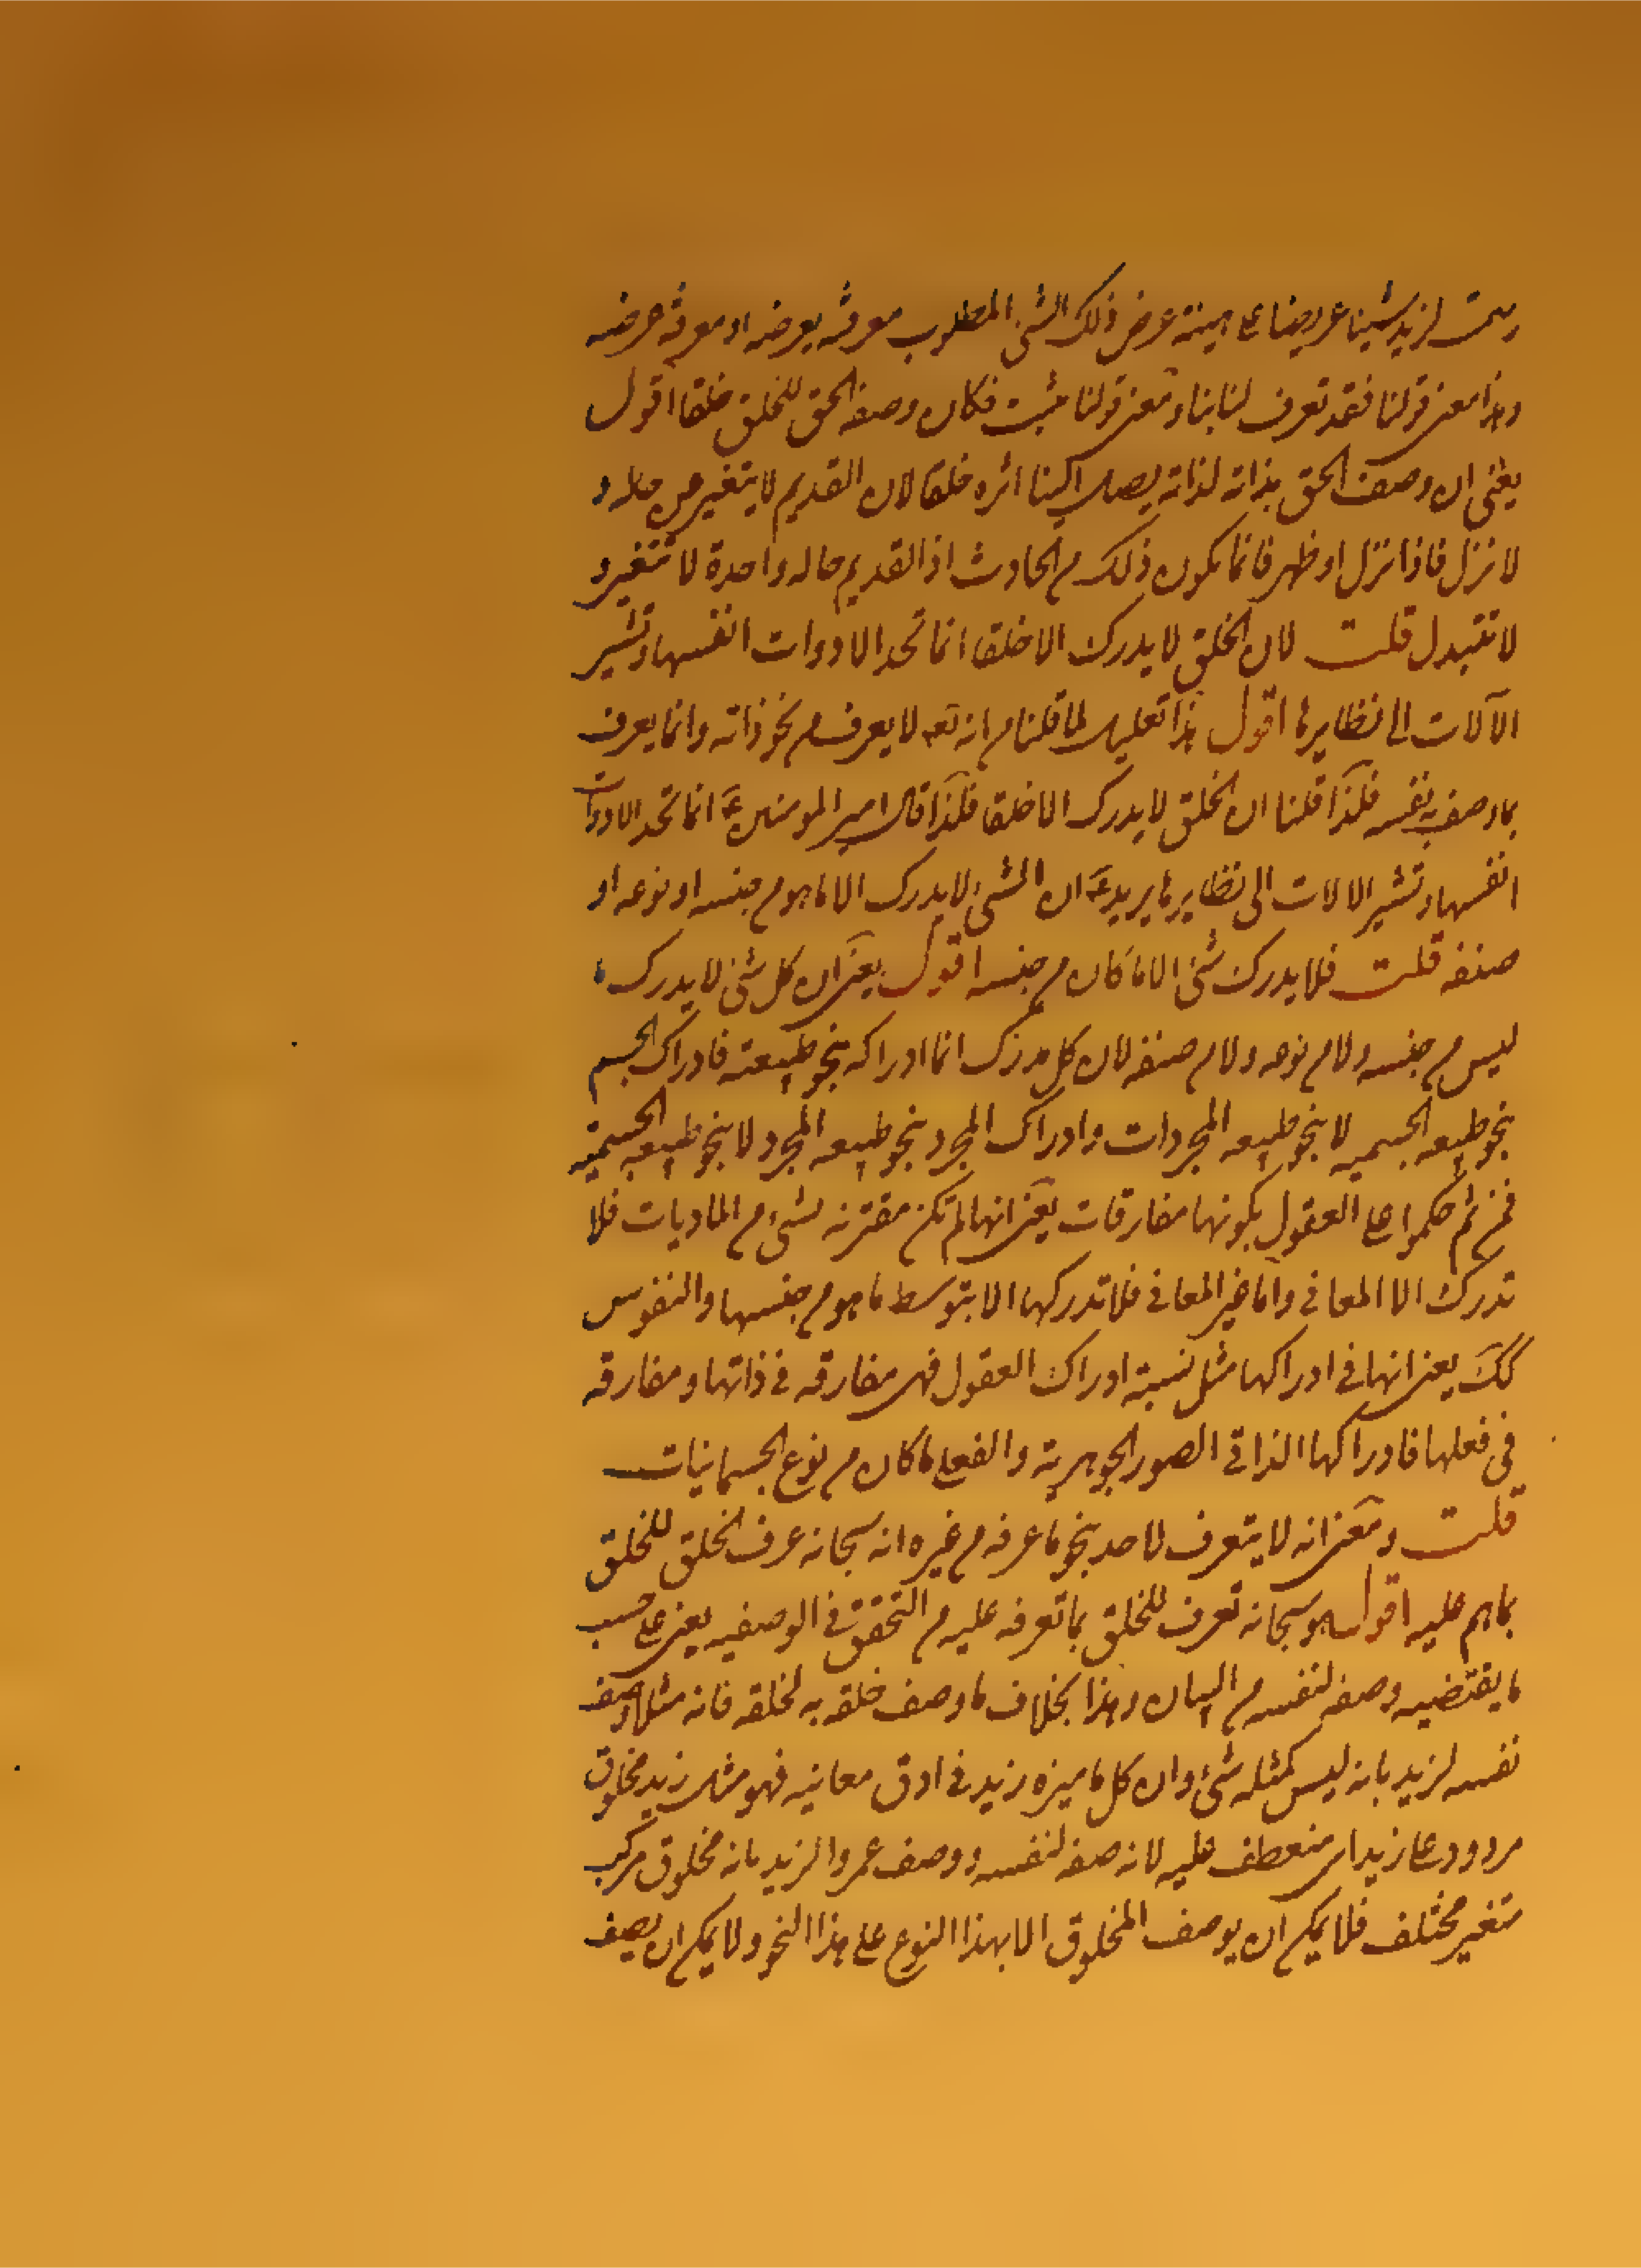 رسمت لزيد شيئا عريضا على هيئة عرض ذلك الشئ المطلوب معرفة بعرضه او معرفة عرضه
وهذا معنى قولنا فقد تعرف لنا بنا ومعنى قولنا مثبت فكان وصف الحق للخلق خلقا اقول
يعنى ان وصف الحق بذاته لذاته يصل الينا اثره خلقا لان القديم لا يتغير عن حاله و
لا نزل فاذا نزل او ظهر فانما يكون ذلك م الحادث اذ القديم حاله واحدة لا تتغير و
لا تتبدل قلت لان الخلق لا يدرك الا خلقا انما تحد الادوات انفسها وتشير
الآلات الى نظايرها اقول هذا تعليل لما قلنا م انه تع لا يعرف م نحو ذاته وانما يعرف
بما وصف به نفسه فلذا قلنا ان الخلق لا يدرك الا خلقا فلذا قال امير المومنين ع انما تحد الادوات
انفسها وتشير الالات الى نظايرها يريد ع ان الشئ لا يدرك الا ما هو م جنسه او نوعه او
صنفه قلت فلا يدرك شئ الا ما كان م جنسه اقول يعنى ان كل شئ لا يدرك ما
ليس م جنسه ولا م نوعه ولا م صنفه لان كل مدرك انما ادراكه بنحو طبيعته فادراك الجسم
بنحو طبيعه الجسميه لا بنحو طبيعه المجردات وادراك المجرد بنحو طبيعه المجرد لا بنحو طبيعه الجسميه
فمن ثم حكموا على العقول بكونها مفارقات يعنى انها لم تكن مقترنه بشئ م الماديات فلا
تدرك الا المعانى واما غير المعانى فلا تدركها الا بتوسط ما هو م جنسها والنفوس
كك يعنى انها فى ادراكها مثل نسبة ادراك العقول فهى مفارقه فى ذاتها ومفارقه
فى فعلها فادراكها الذاتى الصور الجوهرية والفعلى ما كان م نوع الجسمانيات
قلت ومعنى انه لا يتعرف لاحد بنحو ما عرفه م غيره انه سبحانه عرف الخلق للخلق
بما هم عليه اقول هو سبحانه تعرف للخلق بما تعرفه عليه م التحقق فى الوصفيه يعنى على حسب
ما يقتضيه وصفه لنفسه م البيان وهذا بخلاف ما وصف خلقه به لخلقه فانه مثلا وصف
نفسه لزيد بانه ليس كمثله شئ وان كل ما ميزه زيد فى ادق معانيه فهو مثل زيد مخلوق
مردود على زيد اى منعطف عليه لانه صفه لنفسه ووصف عمروا لزيد بانه مخلوق مركب
متغير مختلف فلا يمكن ان يوصف المخلوق الا بهذا النوع على هذا النحو ولا يمكن ان يصف